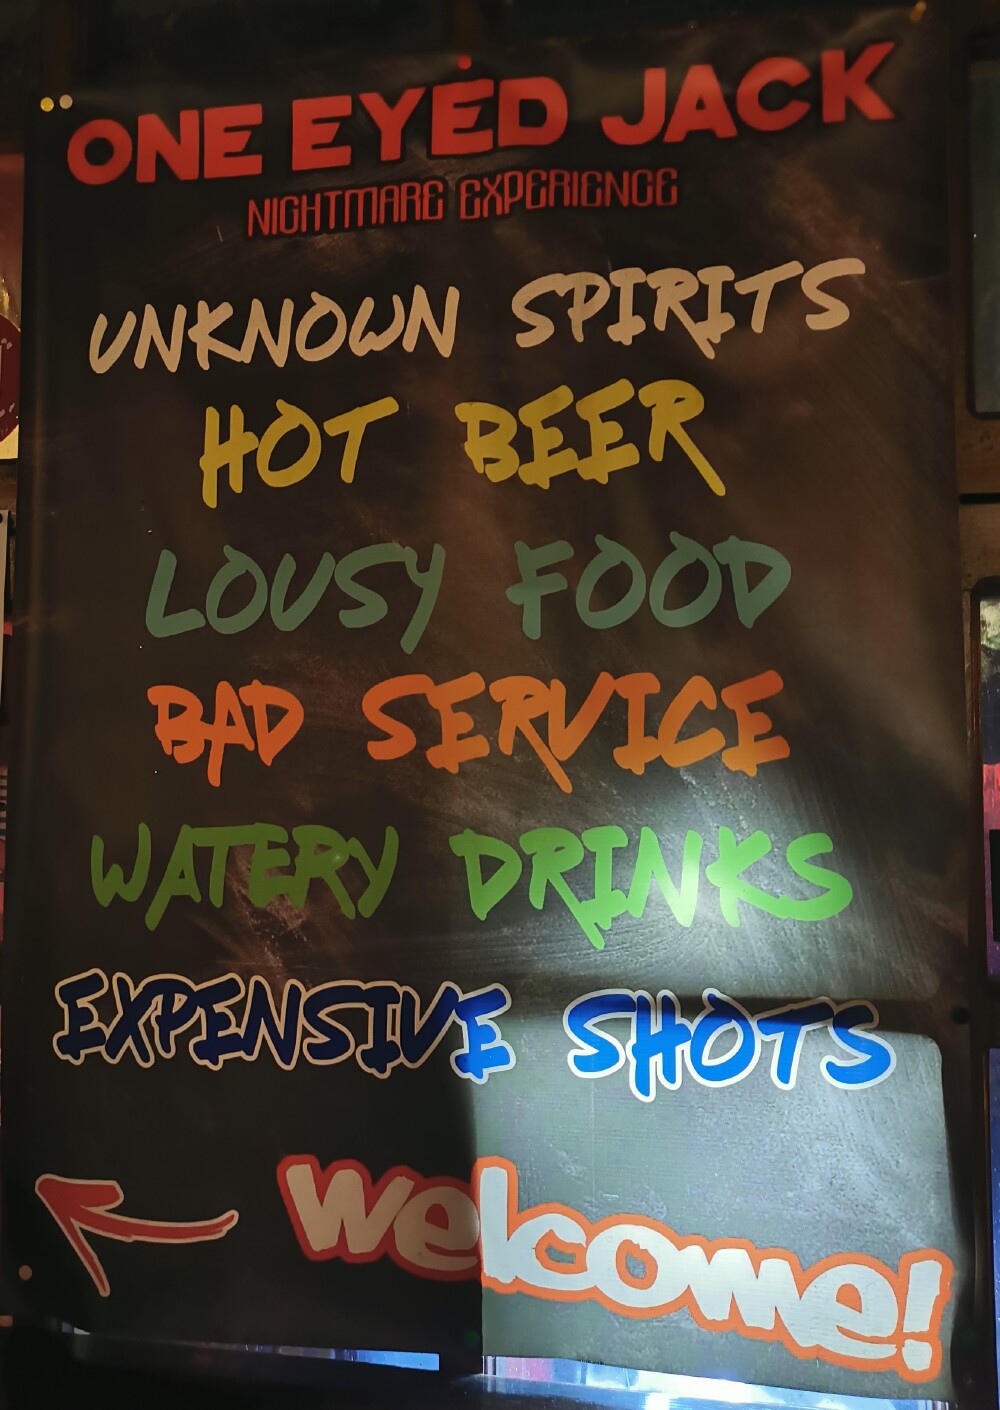 ONE EYED JACK
NIGHTMARE EXPERIENCE
UNKNOWN SPIRITS
HOT BEER
LOUSY FOOD
BAD SERVICE
WATERY DRINKS
EXPENSIVE SHOTS
welcome!